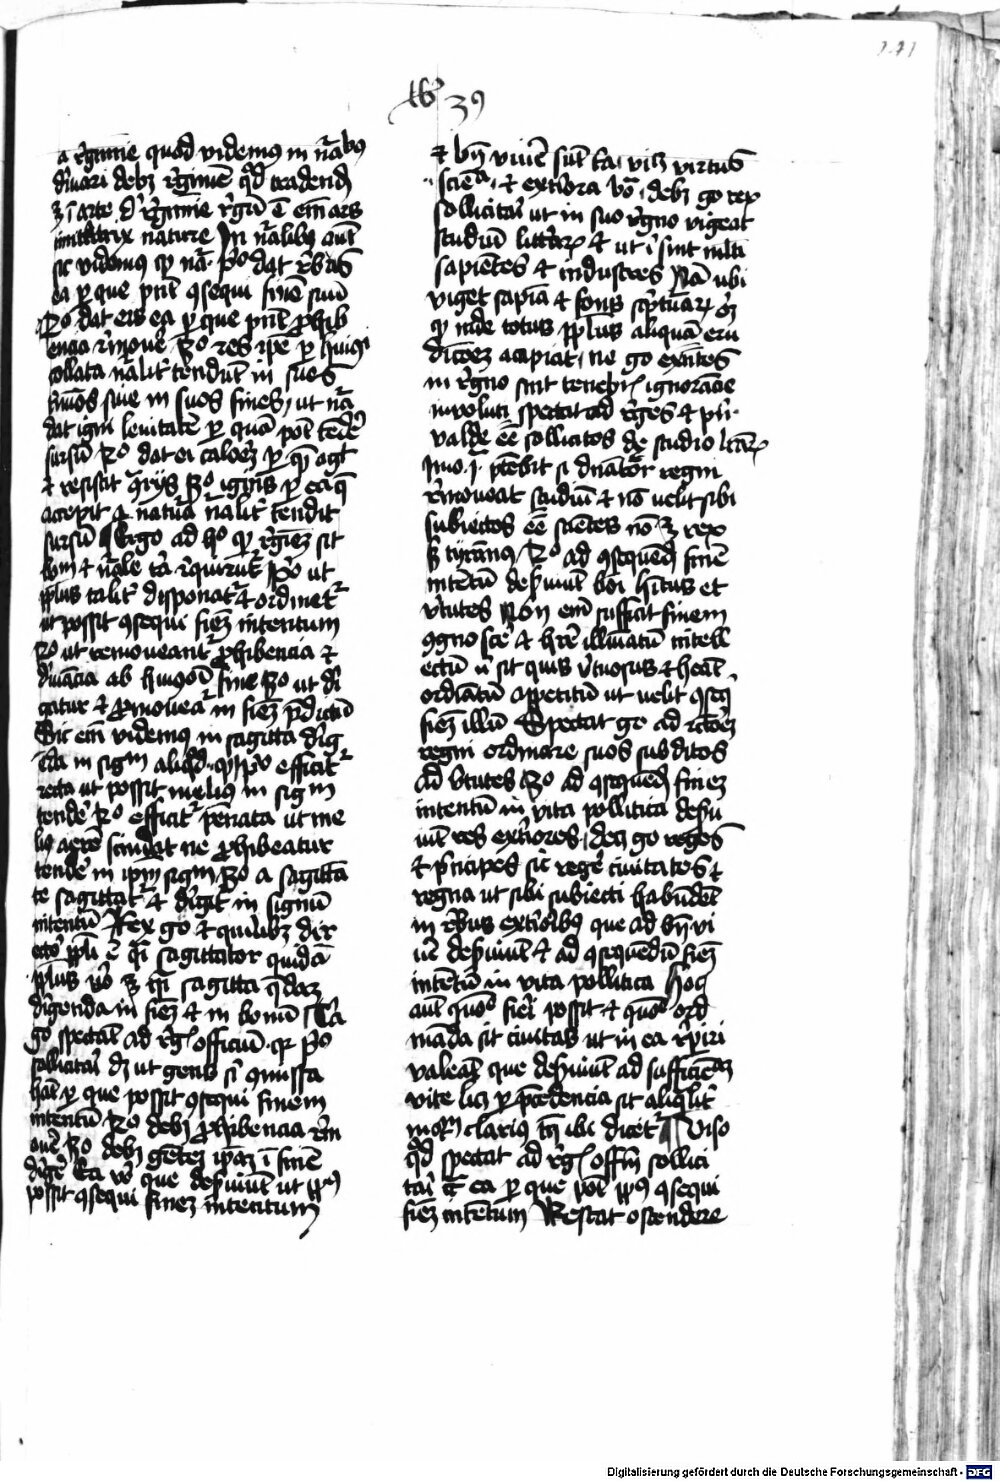 141
39
a regimine quod videmus in naturalibus
dirivari debet regimen quod tradendum
est in arte de regimine regum est enim ars
imitatrix nature In naturalibus autem
sic videmus quod natura primo dat rebus
ea per que possunt consequi finem suum
2o dat eis ea per que possunt prohib
encia removere 3o res ipse per huiusmodi
collata naturaliter tendunt in suos
terminos sive in suos fines ut natura
dat igni levitatem per quam potest tendere
sursum 2o dat ei calorem per quem agit
et resistit contrariis 3o ignis per ea que
accepit a natura naturaliter tendit
sursum Ergo ad hoc quod regimen sit
bonum et naturale tria requiruntur primo ut
populus taliter disponatur et ordinetur
ut possit consequi finem intentum
2o ut removeantur prohibencia et
deviancia ab huiusmodi fine 3o ut diri
gatur et promoveatur in finem predictum
Sic enim videmus in sagitta dirig
enda in signum aliquod quod primo efficitur
recta ut possit melius in signum
tendere 2o efficitur pennata ut me
lius aerem scindat ne prohibeatur
tendere in ipsum signum 3o a sagittan
te sagittatur et dirigitur in signum
intentum Rex ergo et quilibet dir
ector populi est quasi sagittator quidam
populus vero est quasi sagitta quedam
dirigenda in finem et in bonum Tria
ergo spectant ad regis officium quia primo
sollicitari debet ut gens sibi commissa
habeat per que possit consequi finem
intentum 2o debet prohibencia rem
overe 3o debet gentem ipsam in finem
dirigere Ea vero que deserviunt ut populus
possit consequi finem intentum
et bene vivere sunt tria videlicet virtus
sciencia et exteriora bona debet ergo rex
sollicitari ut in suo regno vigeat
studium litterarum et ut ibi sint multi
sapientes et industres Nam ubi
viget sapiencia et fons scripturarum oportet
quod inde totus populus aliquam eru
dicionem accipiat ne ergo existentes
in regno sint tenebris ignorancie
involuti spectat ad reges et principes
valde esse sollicitos de studio litterarum
Immo ut patebit si dominator regni
removeat studium et non velit sibi
subiectos esse scientes non est rex
sed tyrannus 2o ad consequendum finem
intentum deserviunt boni habitus et
virtutes Non enim sufficit finem
cognoscere et habere illuminatum intell
ectum nisi sit quis virtuosus et habeat
ordinatum appetitum ut velit consequi
finem illum Spectat ergo ad rectorem
regni ordinare suos subditos
ad virtutes 3o ad consequendum finem
intentum in vita pollitica deservi
unt res exteriores decet ergo reges
et principes sic regere civitates et
regna ut sibi subiecti habundent
in rebus exterioribus que ad bene vi
vere deserviunt et ad consequendum finem
intentum in vita pollitica Hoc
autem quomodo fieri possit et quomodo ord
inanda sit civitas ut in ea reperiri
valeant que deserviunt ad sufficienciam
vite licet per precedencia sit aliqualiter
notum clarius tamen ibi dicetur Viso
quod spectat ad regis officium sollici
tari circa ea per que potest populus consequi
finem intentum Restat ostendere
Digitalisierung gefördert durch die Deutsche Forschungsgemeinschaft - DFG